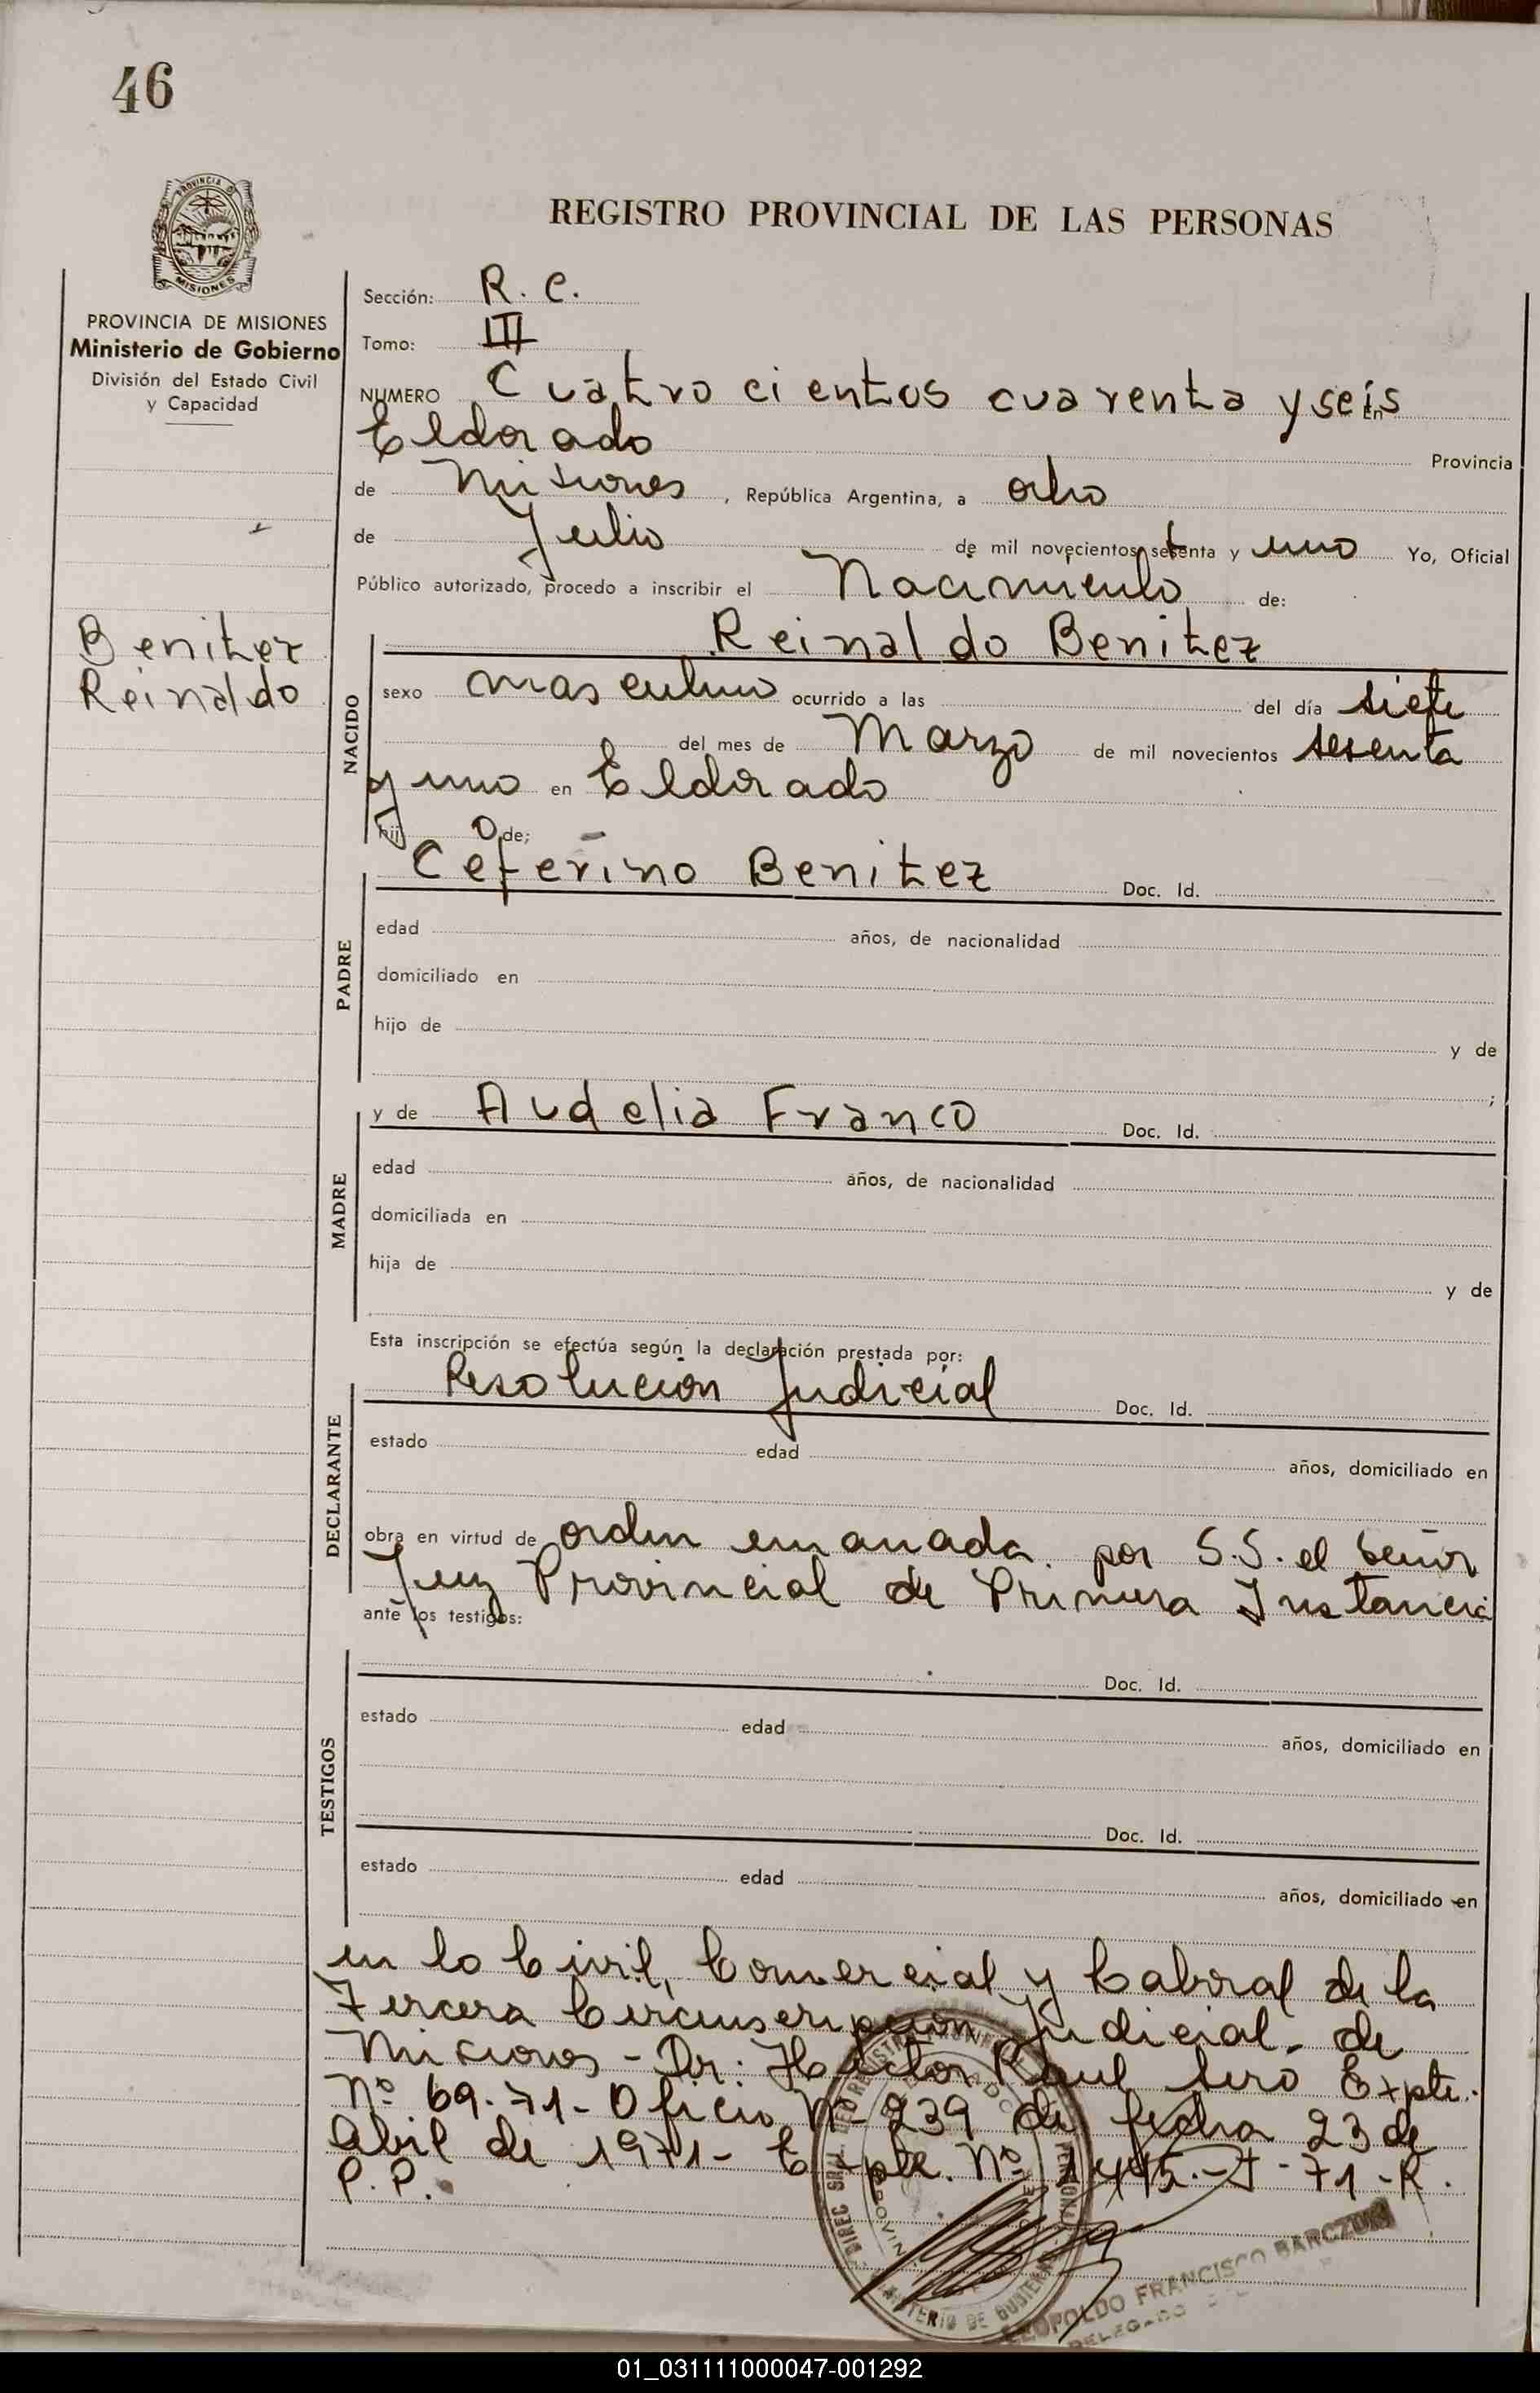 46
PROVINCIA DE
MISIONES
REGISTRO PROVINCIAL DE LAS PERSONAS
PROVINCIA DE MISIONES
Ministerio de Gobierno
División del Estado Civil
y Capacidad
Benitez
Reinaldo
Sección: R. C.
Tomo: III
NUMERO Cuatro cientos cuarenta y seis En
Eldorado Provincia
de Misiones, República Argentina, a ocho
de Julio de mil novecientos setenta y uno Yo, Oficial
Público autorizado, procedo a inscribir el Nacimiento de:
NACIDO
Reinaldo Benitez
sexo masculino ocurrido a las del día siete
del mes de Marzo de mil novecientos sesenta
y uno en Eldorado
hij o de;
PADRE
Ceferino Benitez Doc. Id.
edad años, de nacionalidad
domiciliado en
hijo de y de
;
MADRE
y de Audelia Franco Doc. Id.
edad años, de nacionalidad
domiciliada en
hija de y de
Esta inscripción se efectúa según la declaración prestada por:
DECLARANTE
Resolucion Judicial Doc. Id.
estado edad años, domiciliado en
obra en virtud de orden emanada por S.S. el Señor
Juez Provincial de Primera Instancia
ante los testigos:
TESTIGOS
Doc. Id.
estado edad años, domiciliado en
Doc. Id.
estado edad años, domiciliado en
en lo Civil, Comercial y Laboral de la
Tercera Circunscripcion Judicial - de
Misiones - Dr. Hector Raul Expte.
Nº 69-71 - Oficio Nº 239 de fecha 23 de
Abril de 1971 - Expte. Nº 71 - R.
P. P.
MINISTERIO DE GOBIERNO
LEOPOLDO FRANCISCO BARCZUK
DELEGADO
01_031111000047-001292